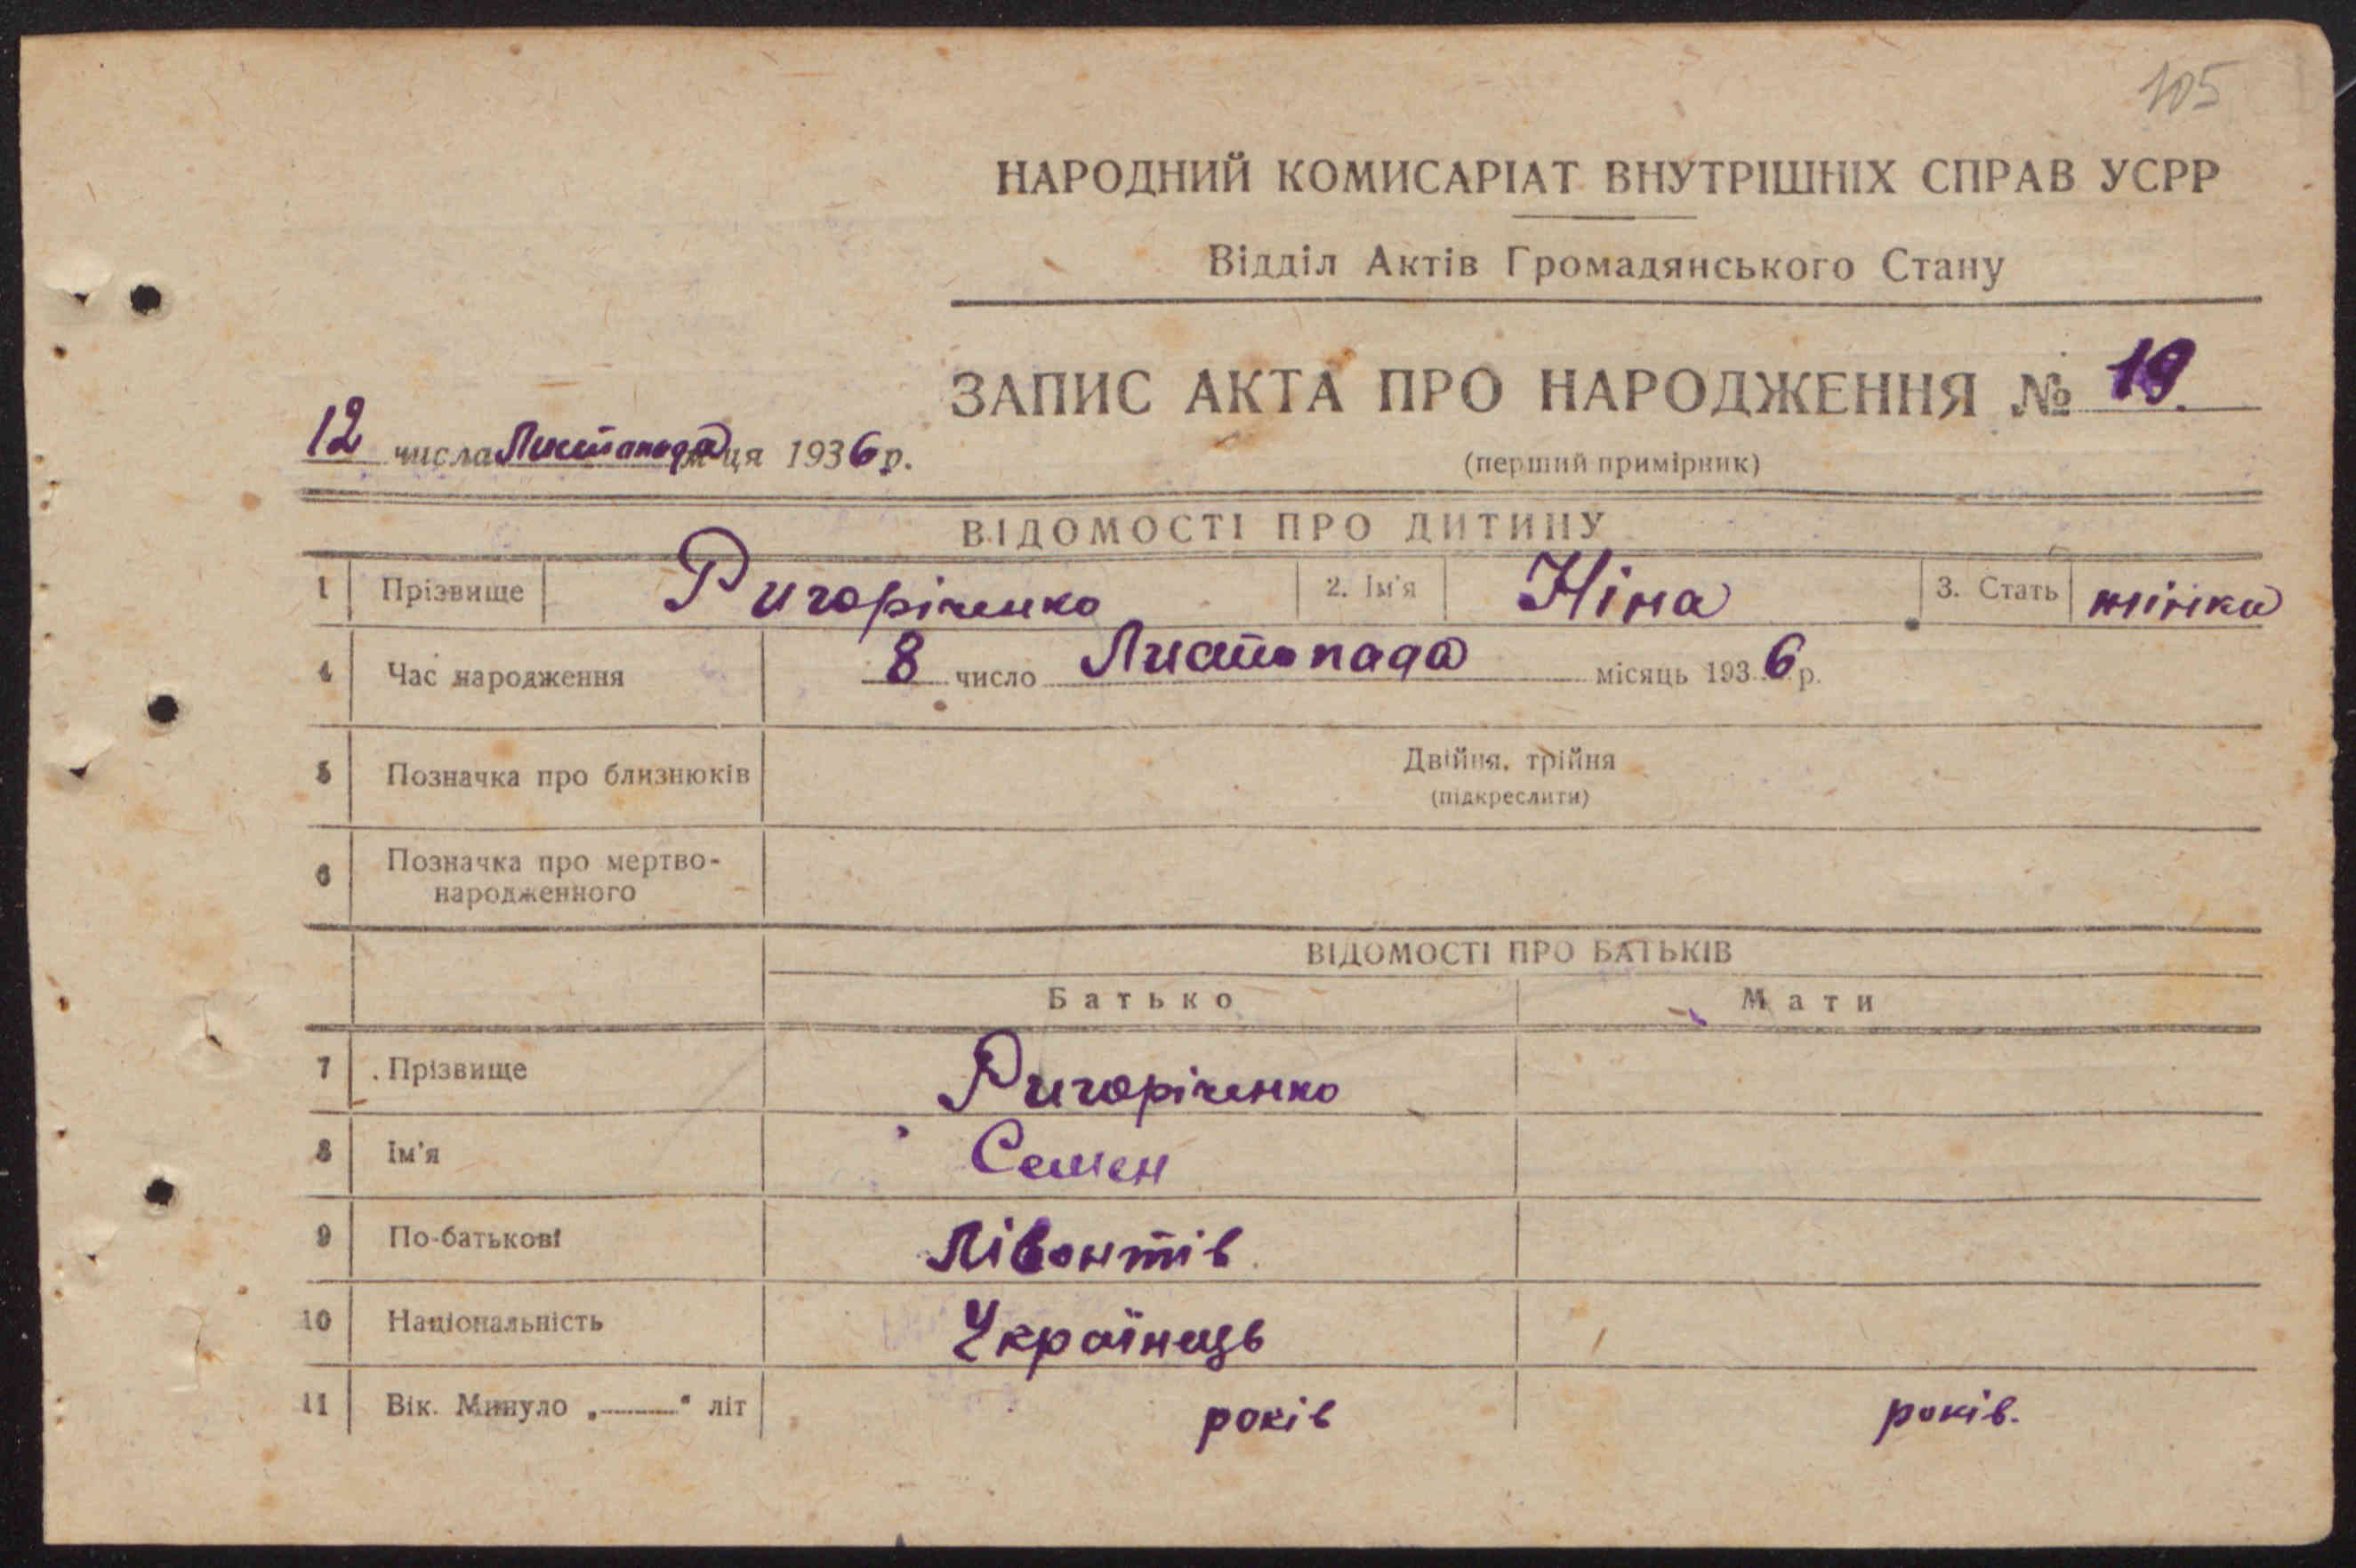 105
НАРОДНИЙ КОМИСАРІАТ ВНУТРІШНІХ СПРАВ УСРР
Відділ Актів Громадянського Стану
ЗАПИС АКТА ПРО НАРОДЖЕННЯ № 19.
12 числа Листопада м-ця 1936 р.
(перший примірник)
ВІДОМОСТІ ПРО ДИТИНУ
1 Прізвище Ригоріченко 2. Ім'я Ніна 3. Стать жінка
4 Час народження 8 число Листопада місяць 1936 р.
5 Позначка про близнюків Двійня, трійня
(підкреслити)
6 Позначка про мертво-
народженного
ВІДОМОСТІ ПРО БАТЬКІВ
Батько Мати
7 Прізвище Ригоріченко
8 Ім'я Семен
9 По-батькові Лівонтів
10 Національність Українець
11 Вік. Минуло „ “ літ років років.